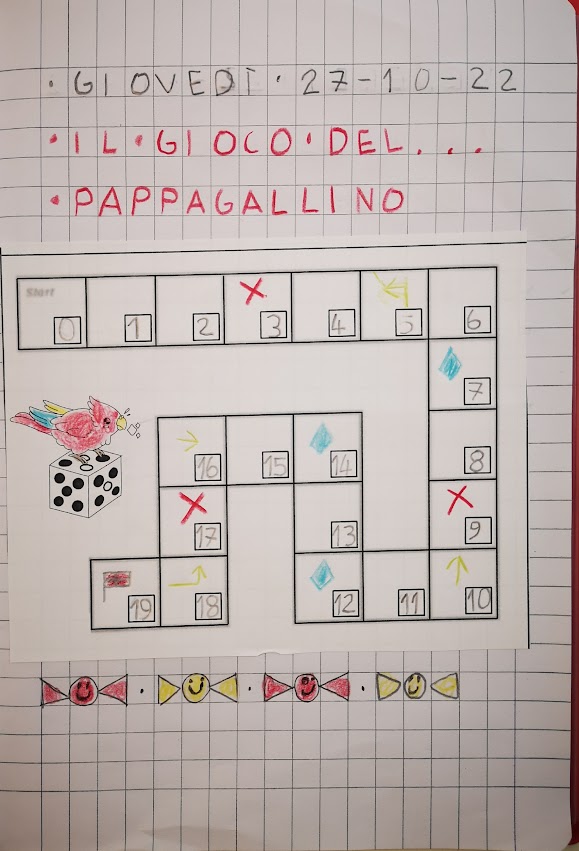 · GIOVEDÌ · 27-10-22
· IL · GIOCO · DEL...
· PAPPAGALLINO
Start
0 1 2 3 4 5 6
7
16 15 14 8
17 13 9
19 18 12 11 10